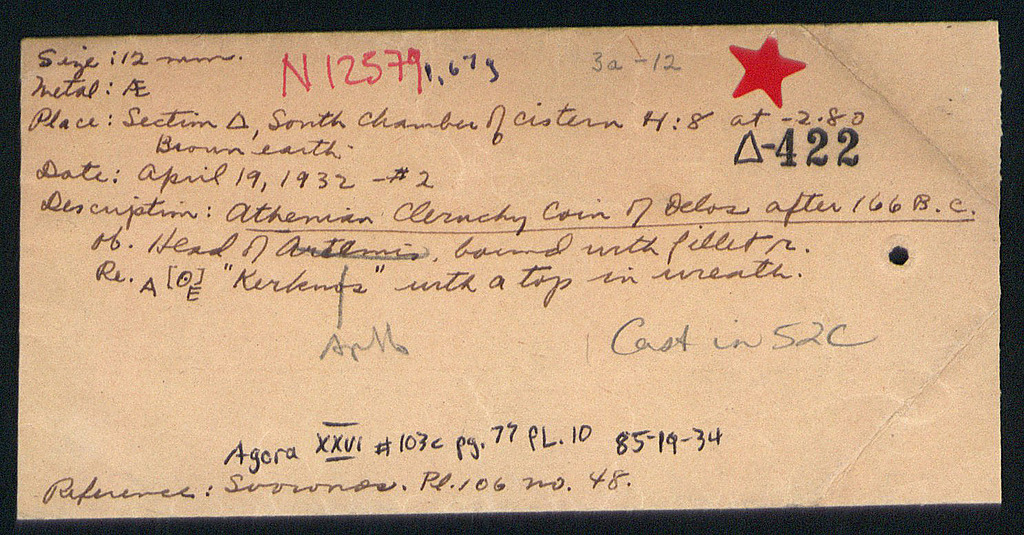 Size: 12 mm. N 12579 1,67g 3a-12
Metal: Æ
Place: Section Δ, South Chamber of cistern H:8 at -2.80
Brown earth.
Δ-422
Date: April 19, 1932 - #2
Description: Athenian Cleruchy Coin of Delos after 166 B.C.
Ob. Head of Artemis, bound with fillet r.
Re. A [Θ] E "Kerknos" with a top in wreath.
Apollo
Cast in S2C
Agora XXVI #103c pg. 77 PL. 10 85-19-34
Reference: Svoronos. Pl. 106 no. 48.